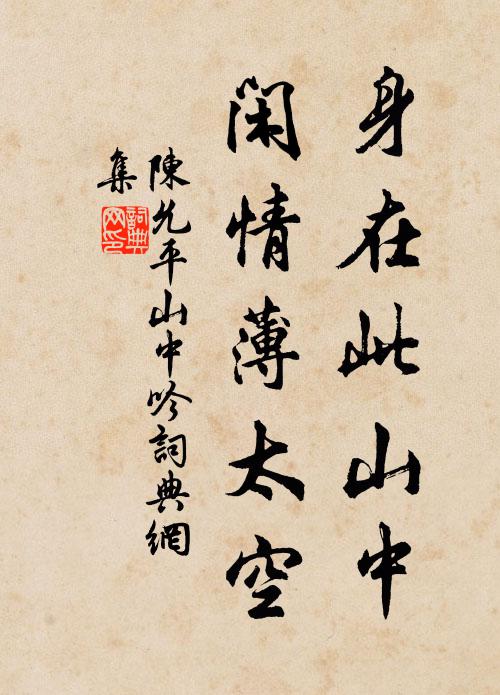 身在此山中
閑情薄太空
陳允平山中吟詞典網
集
詞典網印